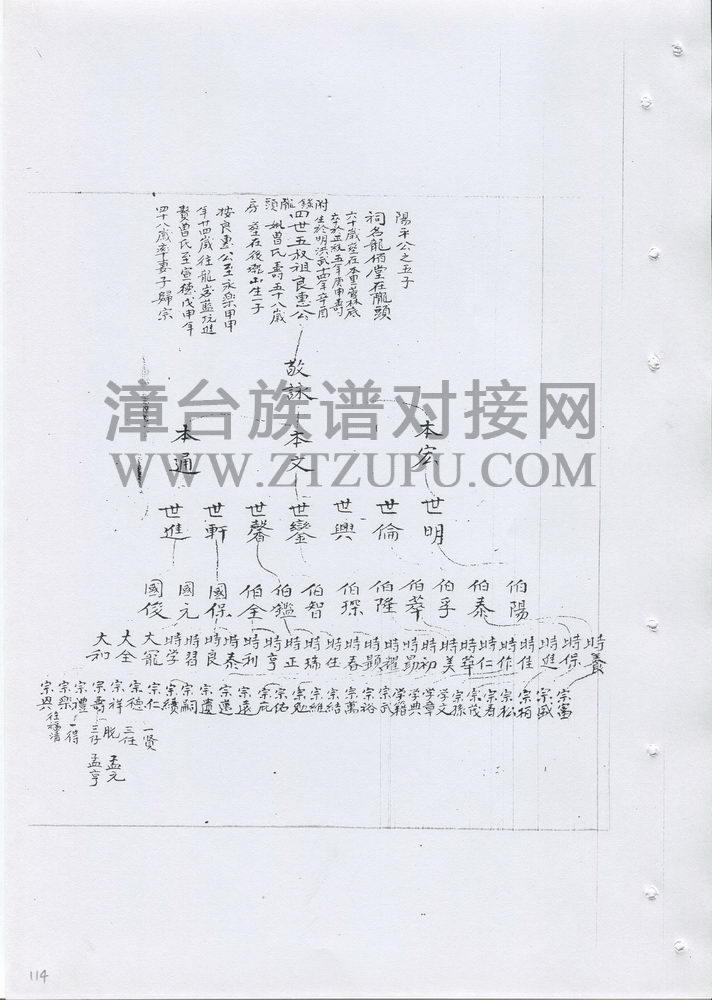 陽平公之五子
祠名龍倍堂在隴頭
六十歲塟在本里
卒於正統五年庚申壽
生於明洪武十四年辛酉
附錄隴頭四世五叔祖良惠公
妣曹氏壽五十八歲
塟在後瓏山生一子
按良惠公至永樂甲申
年廿四歲往龍岩藍坑進
贅曹氏至宣德戊申年
四十八歲率妻子歸宗
敬詠
本宏
本文
本通
世明
世倫
世興
世鑾
世馨
世軒
世進
伯陽
伯泰
伯孚
伯萃
伯隆
伯琛
伯智
伯鑑
伯全
國保
國元
國俊
時養
時保
時進
時佳
時作
時仁
時華
時美
時初
時易
時耀
時顯
時春
時任
時瑞
時正
時亨
時利
時泰
時良
時習
時学
大寵
大全
大和
宗富
宗威
宗栢
宗松
宗寿
宗茂
宗孫
学文
学章
学典
学籍
宗武
宗裕
宗萬
宗結
宗維
宗勉
宗佑
宗庇
宗遠
宗選
宗遺
宗嗣
宗績
宗仁
宗德
宗祥
宗壽
宗禮
宗榮
宗興
往福清
一贤
三任
脱
孟元
三仔
孟亨
一得
漳台族谱对接网
WWW.ZTZUPU.COM
114